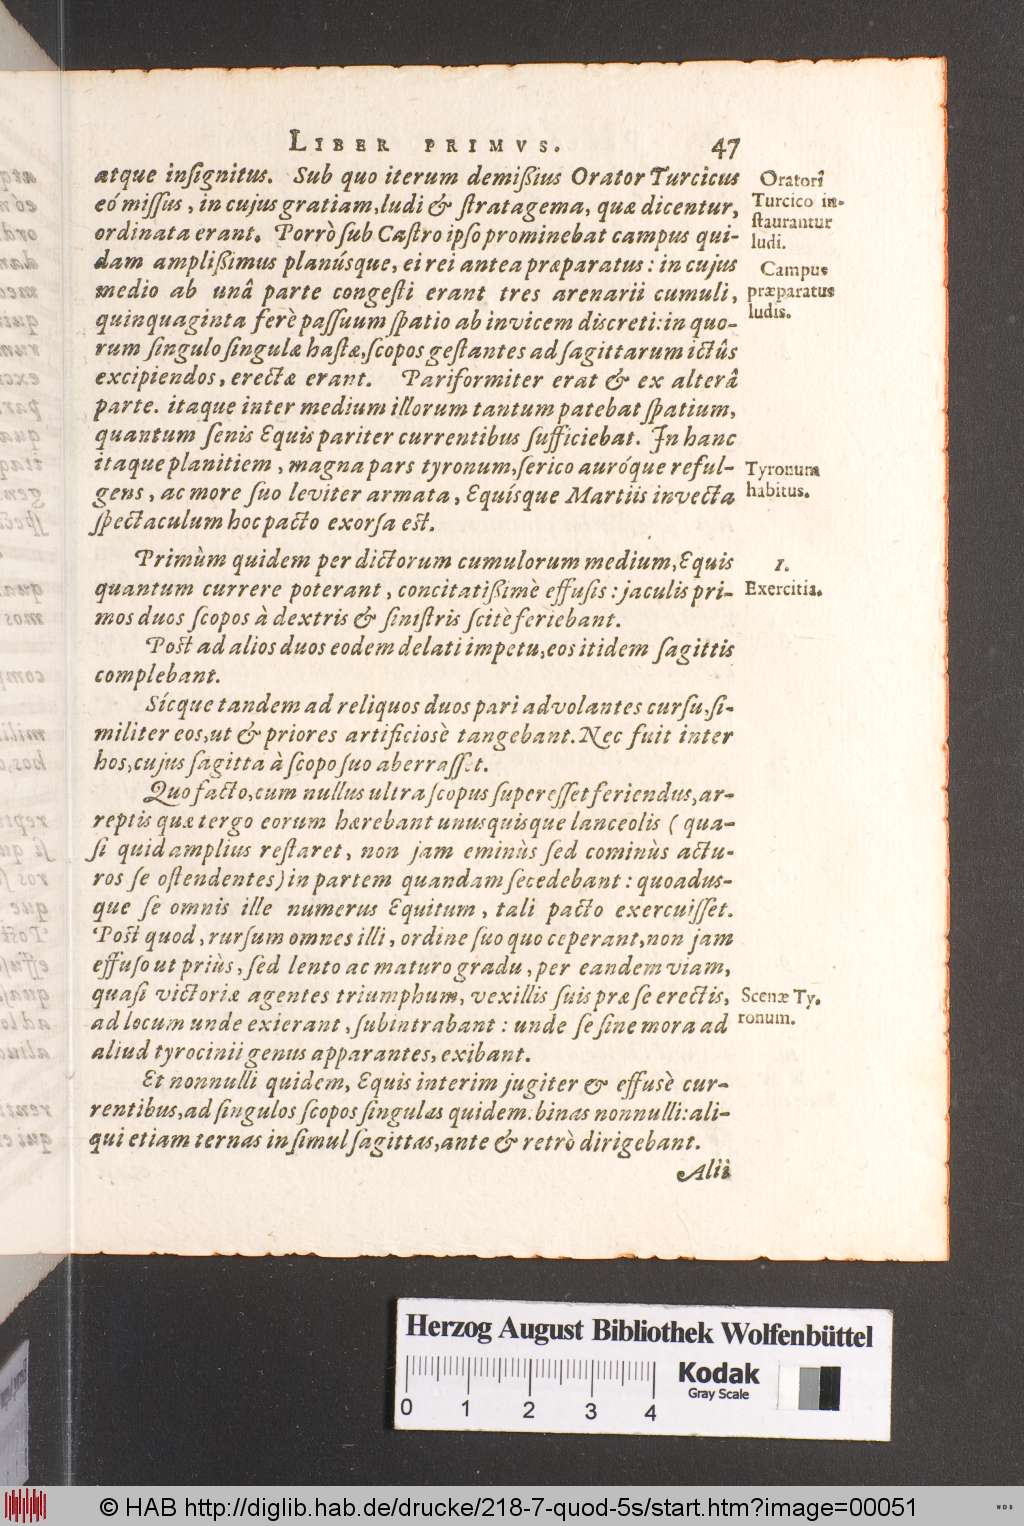 LIBER PRIMVS. 47
atque inſignitus. Sub quo iterum demiſſius Orator Turcicus
eó miſſus, in cujus gratiam, ludi & ſtratagema, quæ dicentur,
ordinata erant. Porrò ſub Caſtro ipſo prominebat campus qui-
dam ampliſſimus planúsque, ei rei antea præparatus: in cujus
medio ab unâ parte congeſti erant tres arenarii cumuli,
quinquaginta ferè paſſuum ſpatio ab invicem discreti: in quo-
rum ſingulo ſingulæ haſtæ, ſcopos geſtantes ad ſagittarum ictûs
excipiendos, erectæ erant. Pariformiter erat & ex alterâ
parte. itaque inter medium illorum tantum patebat ſpatium,
quantum ſenis Equis pariter currentibus ſufficiebat. In hanc
itaque planitiem, magna pars tyronum, ſerico auróque reful-
gens, ac more ſuo leviter armata, Equísque Martiis invecta
ſpectaculum hoc pacto exorſa eſt.
Oratori
Turcico in-
ſtaurantur
ludi.
Campus
præparatus
ludis.
Tyronum
habitus.
Primùm quidem per dictorum cumulorum medium, Equis
quantum currere poterant, concitatiſſimè effuſis: jaculis pri-
mos duos ſcopos à dextris & ſiniſtris ſcitè feriebant.
1.
Exercitia.
Poſt ad alios duos eodem delati impetu, eos itidem ſagittis
complebant.
Sícque tandem ad reliquos duos pari advolantes curſu, ſi-
militer eos, ut & priores artificiosè tangebant. Nec fuit inter
hos, cujus ſagitta à ſcopo ſuo aberraſſet.
Quo facto, cum nullus ultra ſcopus ſupereſſet feriendus, ar-
reptis quæ tergo eorum hærebant unusquisque lanceolis (qua-
ſi quid amplius reſtaret, non jam eminùs ſed cominùs actu-
ros ſe oſtendentes) in partem quandam ſecedebant: quoadus-
que ſe omnis ille numerus Equitum, tali pacto exercuiſſet.
Poſt quod, rurſum omnes illi, ordine ſuo quo ceperant, non jam
effuſo ut priùs, ſed lento ac maturo gradu, per eandem viam,
quaſi victoriæ agentes triumphum, vexillis ſuis præ ſe erectis,
ad locum unde exierant, ſubintrabant: unde ſe ſine mora ad
aliud tyrocinii genus apparantes, exibant.
Scenæ Ty-
ronum.
Et nonnulli quidem, Equis interim jugiter & effuſè cur-
rentibus, ad ſingulos ſcopos ſingulas quidem: binas nonnulli: ali-
qui etiam ternas inſimul ſagittas, ante & retrò dirigebant.
Alii
Herzog August Bibliothek Wolfenbüttel
0 1 2 3 4
Kodak
Gray Scale
© HAB http://diglib.hab.de/drucke/218-7-quod-5s/start.htm?image=00051